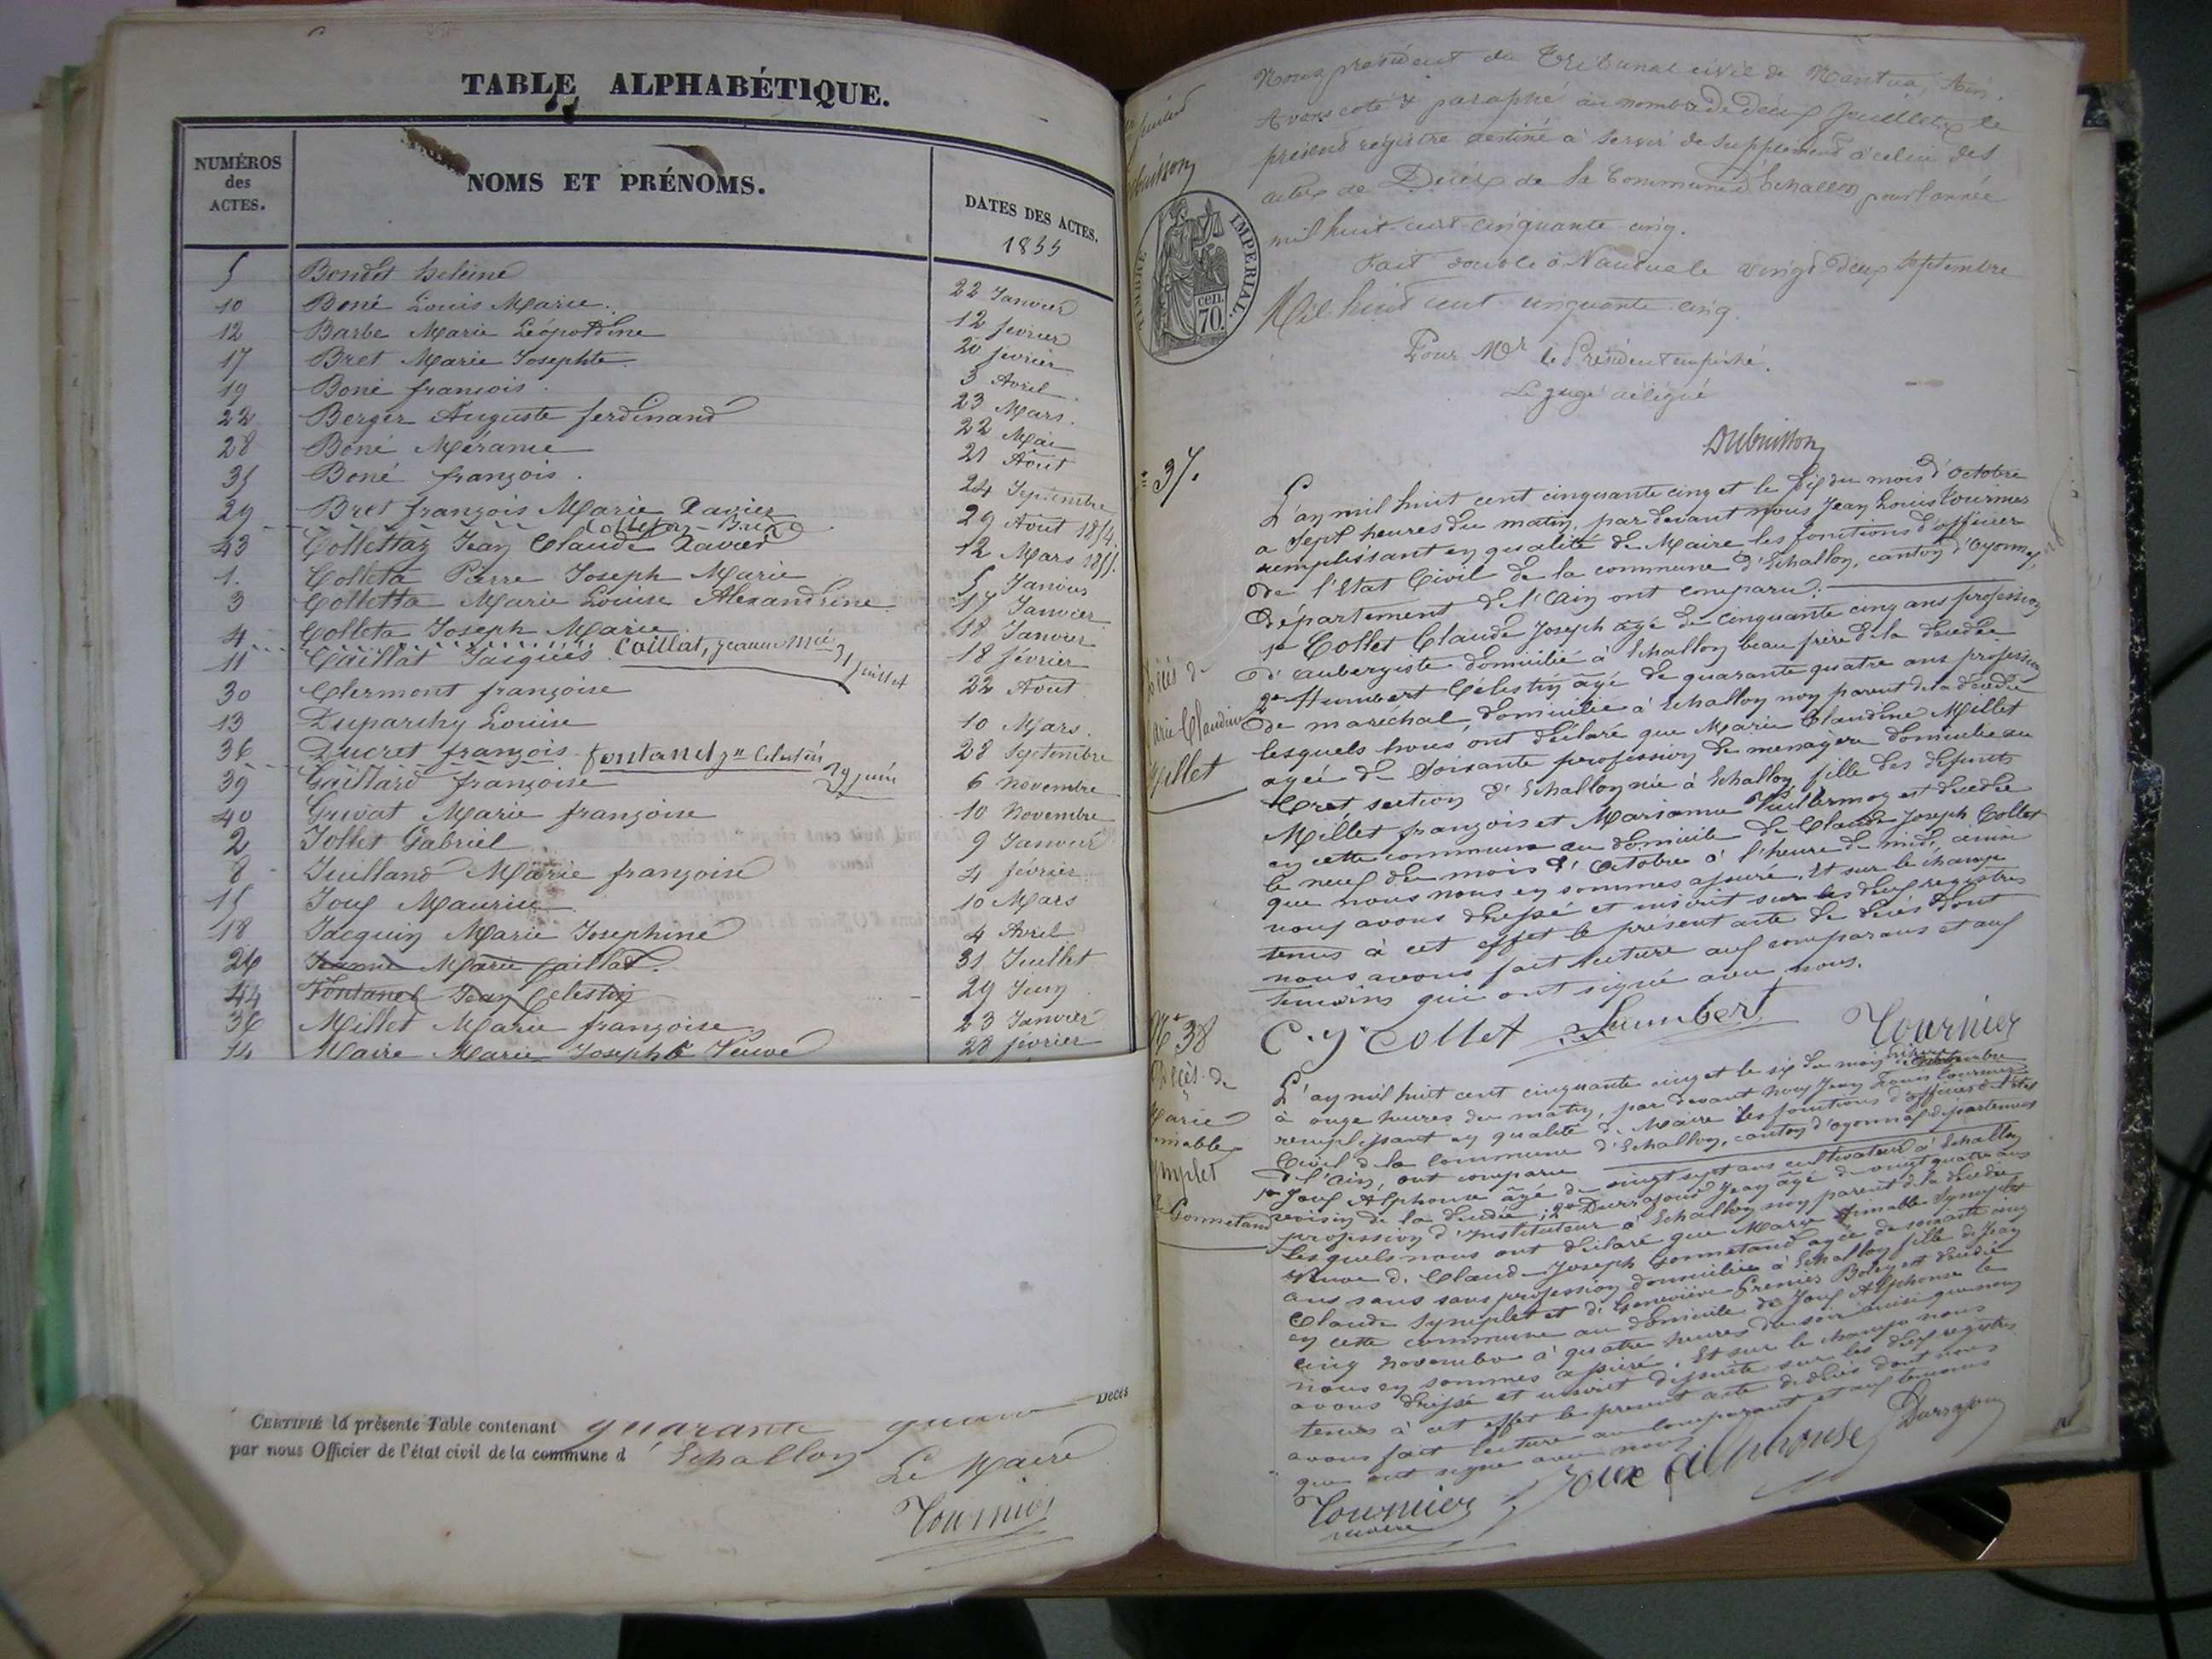 TABLE ALPHABÉTIQUE.
NUMÉROS des ACTES.
NOMS ET PRÉNOMS.
DATES DES ACTES.
1855
5 Bondet heleine 22 Janvier
10 Boné Louis Marie. 12 fevrier
12 Barbe Marie Léopoldine 20 fevrier
17 Bret Marie Josephte 3 Avril
19 Boné francois. 23 Mars.
22 Berger Auguste ferdinand 22 Mai
28 Boné Mérance 21 Août
35 Boné françois. 24 Septembre
29 Bret françois Marie Xavier 29 Août 1854.
43 Collettaz Jean Claude Xavier 12 Mars 1855.
1. Colleta Pierre Joseph Marie 5 Janvier
3 Colletta Marie Louise Alexandrine 17 Janvier
4 Colleta Joseph Marie 18 Janvier
11 Caillat Jacques 18 février
Caillat, jeanne Mie 31 juillet
30 Clermont françoise 22 Août
13 Duparchy Louise 10 Mars.
36 Ducret françois 28 Septembre
fontanel jn Celestin 29 juin
39 Gaillard françoise 6 Novembre
40 Grivat Marie françoise 10 Novembre
2 Jollet Gabriel 9 Janvier
8 Juilland Marie françoise 4 février
15 Joux Maurice 10 Mars
18 Jacquin Marie Josephine 4 Avril
26 Jeanne Marie Caillat. 31 Juillet
44 Fontanel Jean Celestin 29 Juin
36 Millet Marie françoise 23 Janvier
14 Maire Marie Josephte Veuve 28 fevrier
CERTIFIÉ la présente Table contenant quarante quatre Décès
par nous Officier de l'état civil de la commune d'Echallon
Le Maire
Tournier
Nous président du Tribunal civil de Nantua, Ain.
Avons coté & paraphé au nombre de deux feuillets le
présent registre destiné à servir de supplément à celui des
actes de Décès de la Commune d'Echallon pour l'année
mil huit cent cinquante cinq.
Fait double à Nantua le vingt deux septembre
Mil huit cent cinquante cinq.
Pour Mr le Président empêché.
Le juge délégué
Dubuisson
TIMBRE IMPERIAL.
cen. 70.
37.
Décès de
Marie Claudine
Millet
L'an mil huit cent cinquante cinq et le dix du mois d'Octobre
a sept heures du matin, par devant nous Jean Louis Tournier
remplissant en qualité de Maire les fonctions d'officier
de l'Etat Civil de la commune d'Echallon, canton d'Oyonnax,
département de l'Ain ont comparu:
1o Collet Claude Joseph agé de cinquante cinq ans profession
d'aubergiste domicilié à Echallon beau frère de la décédée
2o Humbert Célestin âgé de quarante quatre ans profession
de maréchal, domicilié à Echallon non parent de la décédée
lesquels nous ont déclaré que Marie Claudine Millet
agée de soixante profession de menagère domiciliée au
Crêt section d'Echallon née à Echallon fille des défunts
Millet françois et Marianne Vuillermoz est décédée
en cette commune au domicile de Claude Joseph Collet
le neuf du mois d'Octobre à l'heure de midi, ainsi
que nous nous en sommes assuré. Et sur le champ
nous avons dressé et inscrit sur les deux registres
tenus à cet effet le présent acte de décès dont
nous avons fait lecture aux comparans et aux
temoins qui ont signé avec nous.
C. J. Collet Humbert Tournier
No 38
Décès de
Marie
Aimable
Symplet
Ve Gonnetand
L'an mil huit cent cinquante cinq et le six du mois de novembre
à onze heures du matin, par devant nous Jean Louis Tournier
remplissant en qualité de Maire les fonctions d'officier de l'état
Civil de la commune d'Echallon, canton d'oyonnax département
de l'Ain, ont comparu
1o Joux Alphonse âgé de vingt sept ans cultivateur à Echallon
voisin de la décédée; 2o Jean âgé de vingt quatre ans
profession d'Instituteur à Echallon non parent de la décédée
Lesquels nous ont déclaré que Marie Aimable Symplet
Veuve de Claude-Joseph Gonnetand agée de soixante cinq
ans sans sans profession domiciliée à Echallon fille de Jean
Claude Symplet et de Geneviève Grenier Boley est décédée
en cette commune au domicile de Joux Alphonse le
cinq novembre à quatre heures du soir ainsi que nous
nous en sommes assuré. Et sur le champ nous
avons dressé et inscrit de suite sur les deux registres
tenus à cet effet le présent acte de décès dont nous
avons fait lecture au comparant et aux temoins
qui ont signé avec nous
Tournier maire Joux alphonse